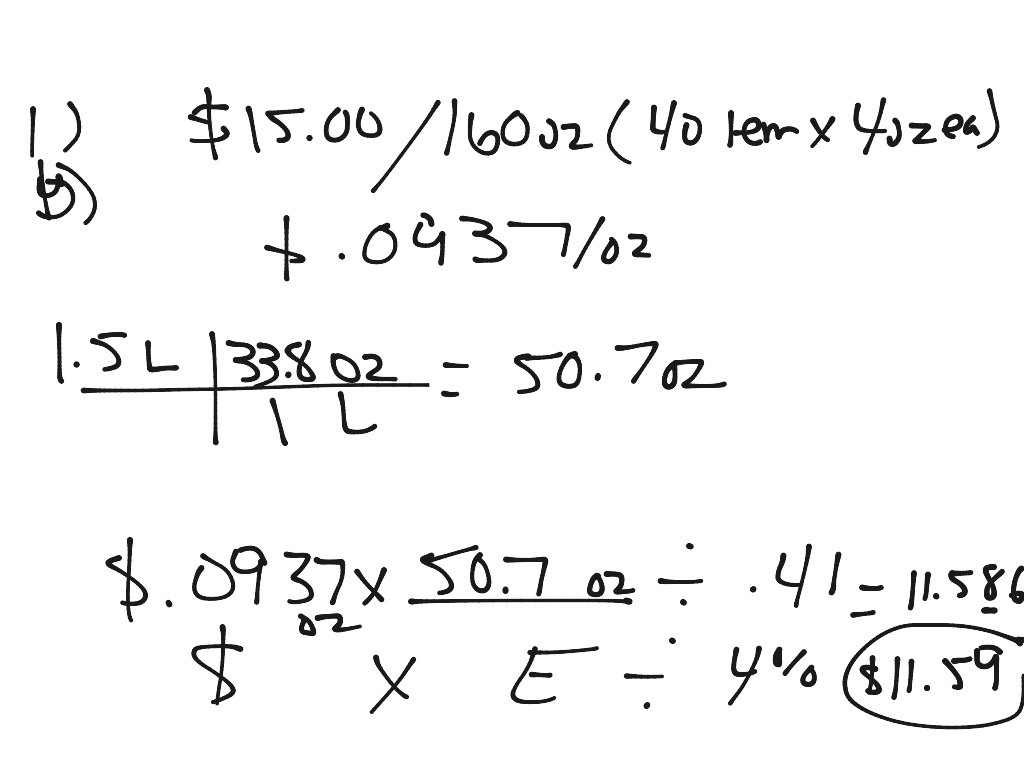 1) $15.00/160oz (40 item x 4oz ea)
b)
$.0937/oz
1.5L | 33.8 oz = 50.7oz
1 L
$.0937 x 50.7 oz ÷ .41 = 11.586
oz
$ x E ÷ Y% $11.59